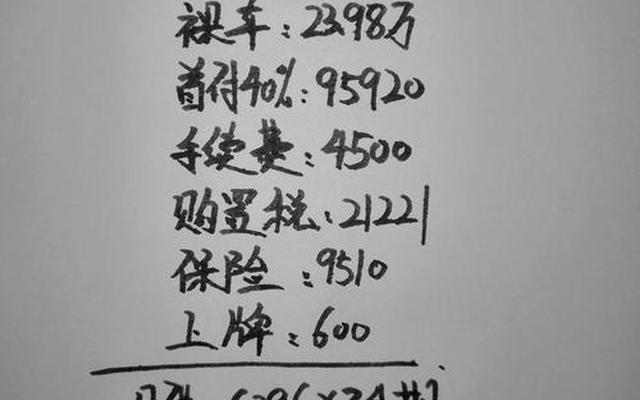 裸车:23.98万
首付40%:95920
手续费:4500
购置税:21221
保险:9510
上牌:600